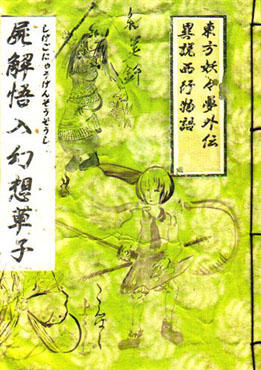 東方妖々夢外伝
異説西行物語
しげごにゅうげんそうぞうし
屍解悟入幻想草子